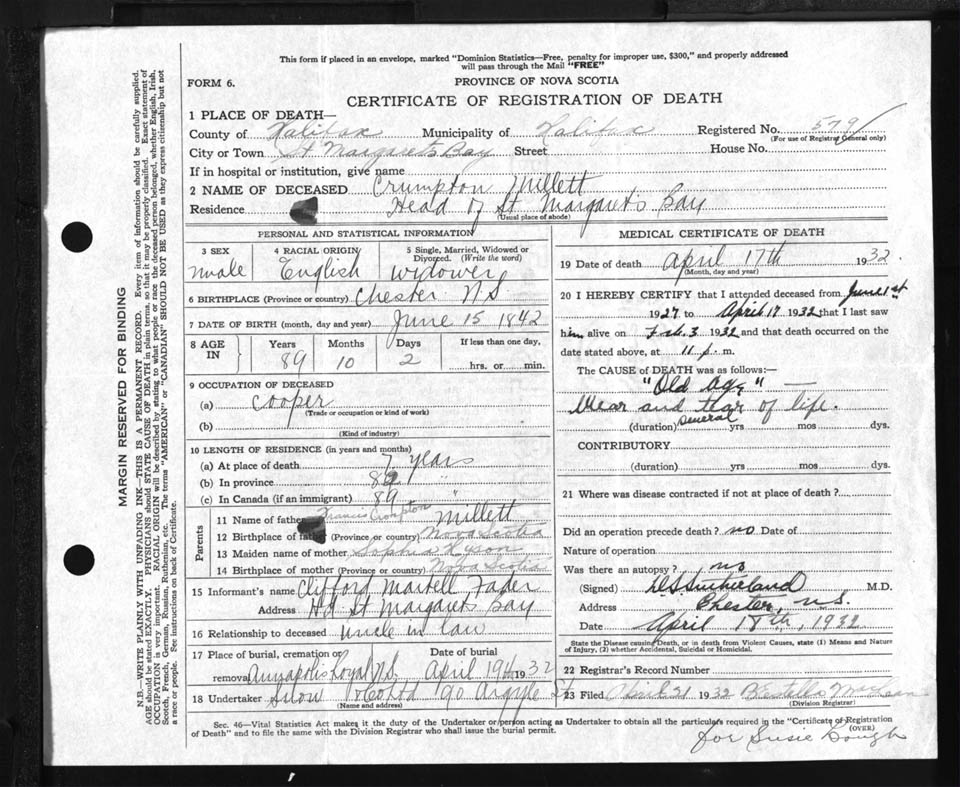 This form if placed in an envelope, marked "Dominion Statistics—Free, penalty for improper use, $300," and properly addressed
will pass through the Mail "FREE"
FORM 6.
PROVINCE OF NOVA SCOTIA
CERTIFICATE OF REGISTRATION OF DEATH
1 PLACE OF DEATH—
County of Halifax Municipality of Halifax Registered No. 579
(For use of Registrar General only)
City or Town St Margarets Bay Street House No.
If in hospital or institution, give name
2 NAME OF DECEASED Crumpton Millett
Residence Head of St Margarets Bay
(Usual place of abode)
PERSONAL AND STATISTICAL INFORMATION
3 SEX 4 RACIAL ORIGIN 5 Single, Married, Widowed or
Divorced. (Write the word)
male English widower
6 BIRTHPLACE (Province or country) Chester N.S.
7 DATE OF BIRTH (month, day and year) June 15 1842
8 AGE IN Years Months Days If less than one day,
89 10 2 hrs. or min.
9 OCCUPATION OF DECEASED
(a) cooper
(Trade or occupation or kind of work)
(b)
(Kind of industry)
10 LENGTH OF RESIDENCE (in years and months)
(a) At place of death 7 years
(b) In province 89 "
(c) In Canada (if an immigrant) 89 "
Parents
11 Name of father Francis Crompton Millett
12 Birthplace of father (Province or country) Nova Scotia
13 Maiden name of mother Sophia
14 Birthplace of mother (Province or country) Nova Scotia
15 Informant's name Clifford Martell Fader
Address Hd St Margarets Bay
16 Relationship to deceased uncle in law
17 Place of burial, cremation or Date of burial
removal Annapolis Royal N.S. April 19th 1932
18 Undertaker Snow 90 Argyle St
(Name and address)
MEDICAL CERTIFICATE OF DEATH
19 Date of death April 17th 1932.
(Month, day and year)
20 I HEREBY CERTIFY that I attended deceased from June 1st
1927 to April 17 1932 that I last saw
him alive on Feb. 3 1932 and that death occurred on the
date stated above, at 11 p. m.
The CAUSE of DEATH was as follows:
"Old Age" —
Wear and tear of life.
(duration) several yrs mos dys.
CONTRIBUTORY
(duration) yrs mos dys.
21 Where was disease contracted if not at place of death ?
Did an operation precede death? no Date of
Nature of operation
Was there an autopsy? no
(Signed) Sutherland M.D.
Address Chester, N.S.
Date April 18th, 1932
State the Disease causing Death, or in death from Violent Causes, state (1) Means and
Nature of Injury, (2) whether Accidental, Suicidal or Homicidal.
22 Registrar's Record Number
23 Filed April 21 1932
(Division Registrar)
Sec. 46—Vital Statistics Act makes it the duty of the Undertaker or person acting as Undertaker to obtain all the particulars required in the "Certificate of Registration
of Death" and to file the same with the Division Registrar who shall issue the burial permit. (OVER)
for Susie Gough
MARGIN RESERVED FOR BINDING
N.B.—WRITE PLAINLY WITH UNFADING INK—THIS IS A PERMANENT RECORD. Every item of information should be carefully supplied.
AGE should be stated EXACTLY. PHYSICIANS should STATE CAUSE OF DEATH in plain terms, so that it may be properly classified. Exact statement of
OCCUPATION is very important. RACIAL ORIGIN will be described by stating to what people or race the deceased person belonged, whether English, Irish,
Scotch, French, German, Russian, Ruthenian, etc. The terms "AMERICAN" or "CANADIAN" SHOULD NOT BE USED as they express citizenship but not
a race or people. See instructions on back of Certificate.